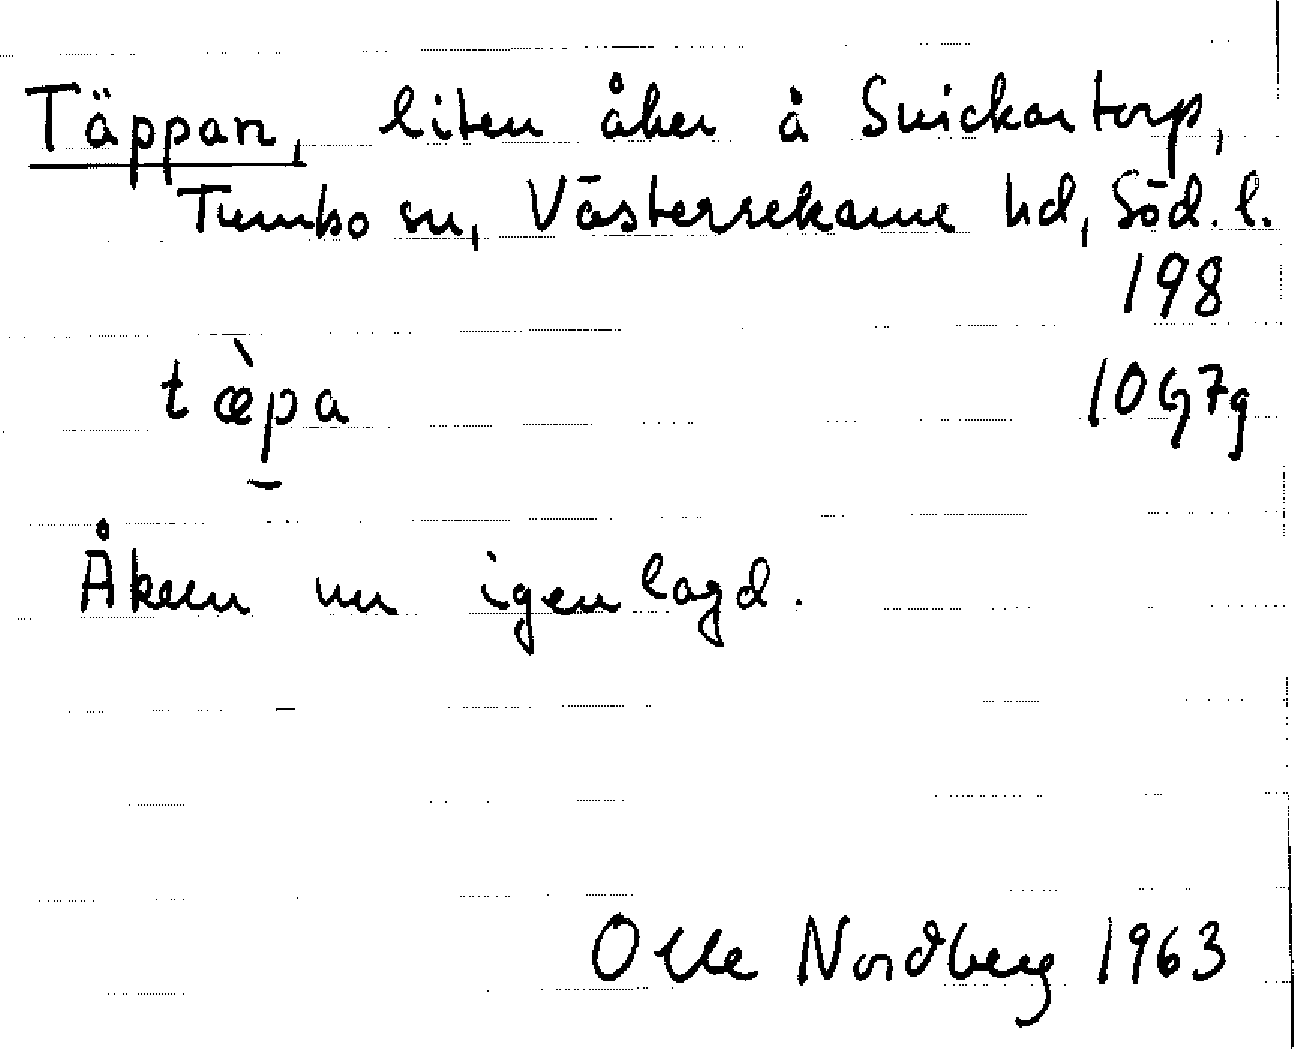 Täppan, liten åker å Snickartorp,
Tumbo sn, Västerrekarne hd, Söd. l.
198
tæ̀p̮a 10G7g
Åkern nu igenlagd.
Olle Nordberg 1963